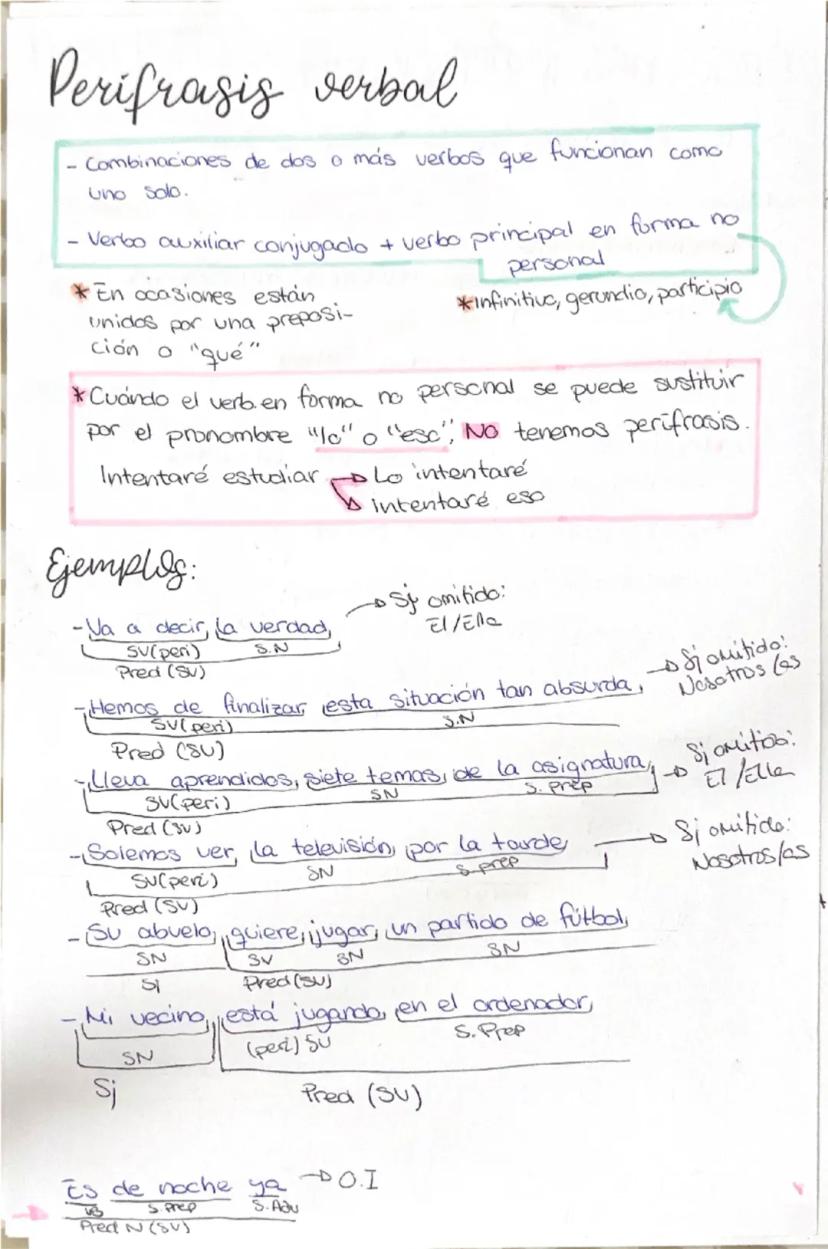 Perífrasis verbal
- Combinaciones de dos o más verbos que funcionan como
uno solo.
- Verbo auxiliar conjugado + verbo principal en forma no
personal
* En ocasiones están
unidos por una preposi-
ción o "qué"
* Infinitivo, gerundio, participio
* Cuándo el verb. en forma no personal se puede sustituir
por el pronombre "lo" o "eso", NO tenemos perífrasis.
Intentaré estudiar → Lo intentaré
intentaré eso
Ejemplos:
- Va a decir la verdad → Sj omitido:
El/Ella
SV(peri) S.N
Pred (SV)
- Hemos de finalizar esta situación tan absurda → Sj omitido:
Nosotros/as
SV(peri) S.N
Pred (SV)
- Lleva aprendidos siete temas de la asignatura → Sj omitido:
El/Ella
SV(peri) SN S. Prep
Pred (SV)
- Solemos ver la televisión por la tarde → Sj omitido:
Nosotros/as
SV(peri) SN S.prep
Pred (SV)
- Su abuelo quiere jugar un partido de fútbol
SN SV SN SN
Sj Pred (SV)
- Mi vecino está jugando en el ordenador
SN (peri) SV S. Prep
Sj Pred (SV)
Es de noche ya → O.I
VB S. Prep S. Adv
Pred N (SV)